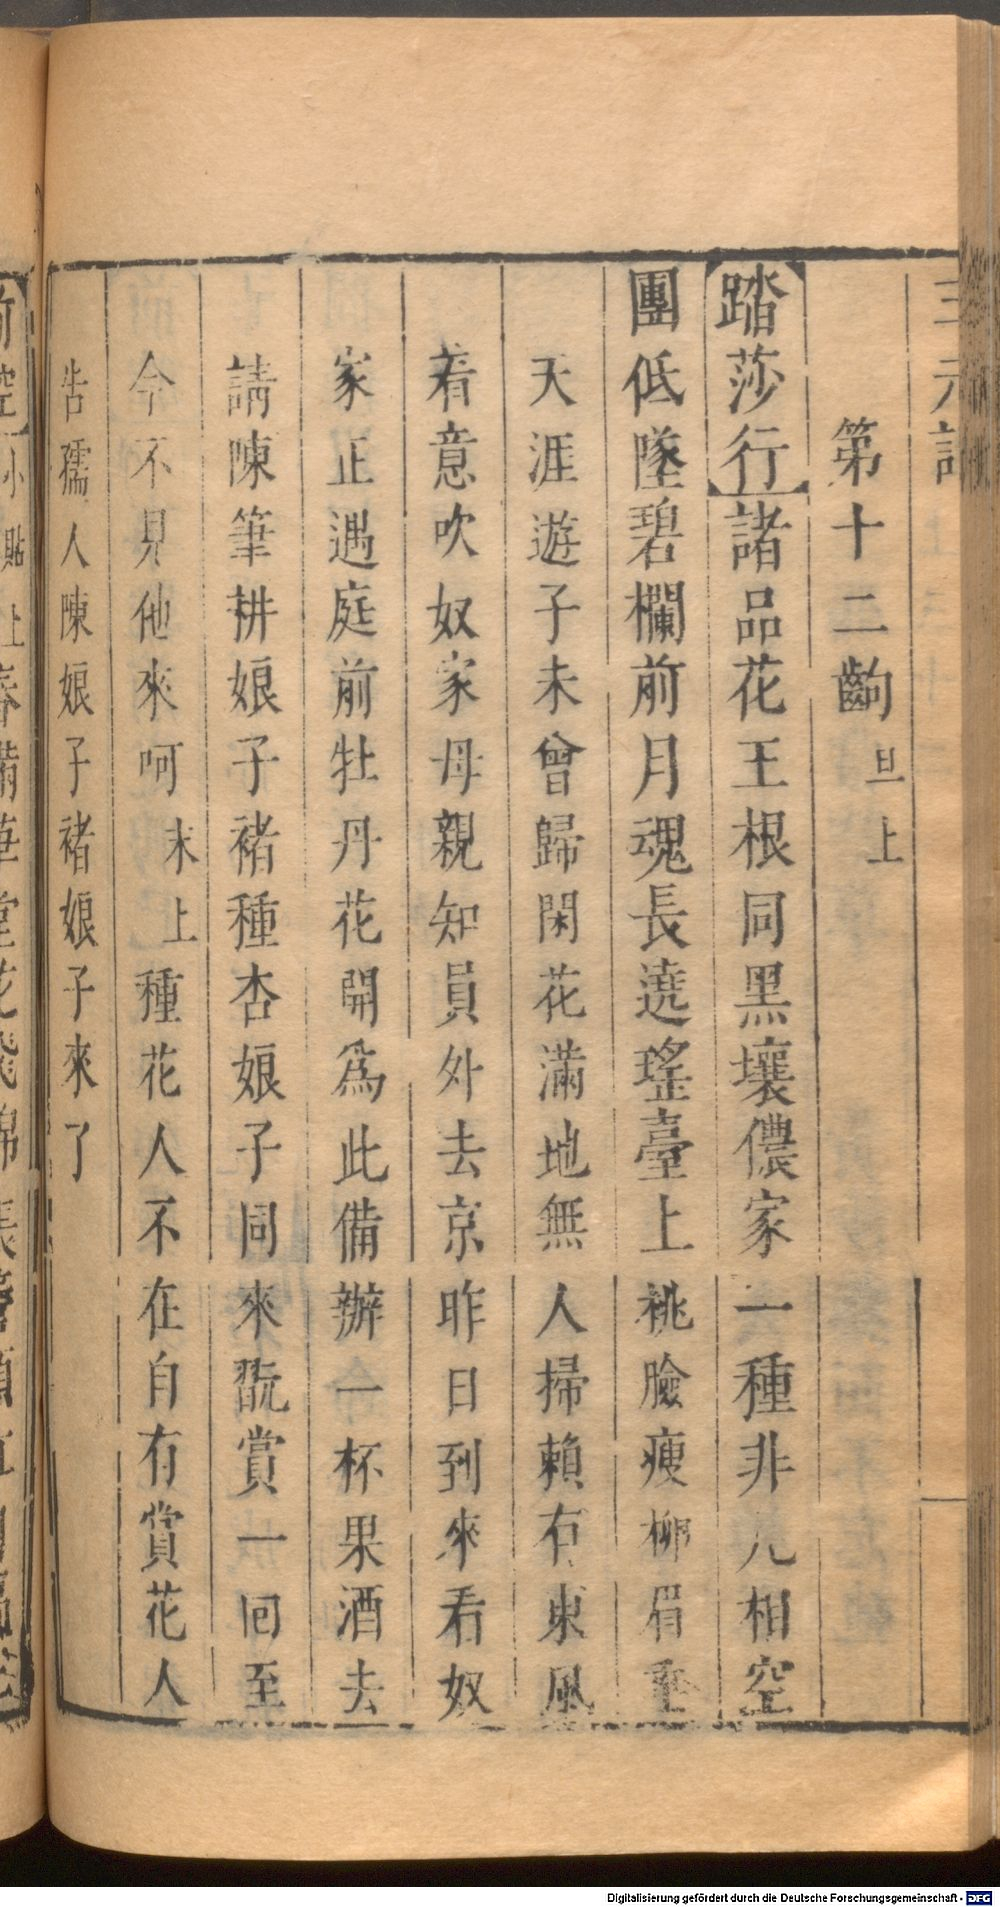 三元記
第十二齣 旦上
踏莎行 諸品花王根同黑壤儂家一種非凡相空
團低墜碧欄前月魂長遶瑤臺上 桃臉瘦柳眉
天涯遊子未曾歸閑花滿地無人掃賴有東風
着意吹奴家母親知員外去京昨日到來看奴
家正遇庭前牡丹花開為此備辦一杯果酒去
請陳筆耕娘子褚種杏娘子同來翫賞一回至
今不見他來呵 末上 種花人不在自有賞花人
告孺人陳娘子褚娘子來了
前腔 小貼上
Digitalisierung gefördert durch die Deutsche Forschungsgemeinschaft - DFG